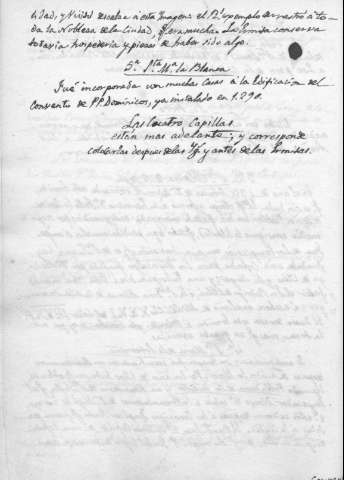 tidad, y Visitas de salas a esta Imagen: el P.e exemplo de rrastró a to-
da la Nobleza de la Ciudad, q.e era mucha. La Ermita conserva
todavía hospedería y piezas de haber sido algo.
5.a S.ta M.a la Blanca
Fué incorporada con muchas casas à la edificacion del
convento de PP. Dominicos, ya instalado en 1290.
Las cuatro Capillas
están mas adelante; y corresponde
colocarlas despues de las Yg.s y antes de las Ermitas.